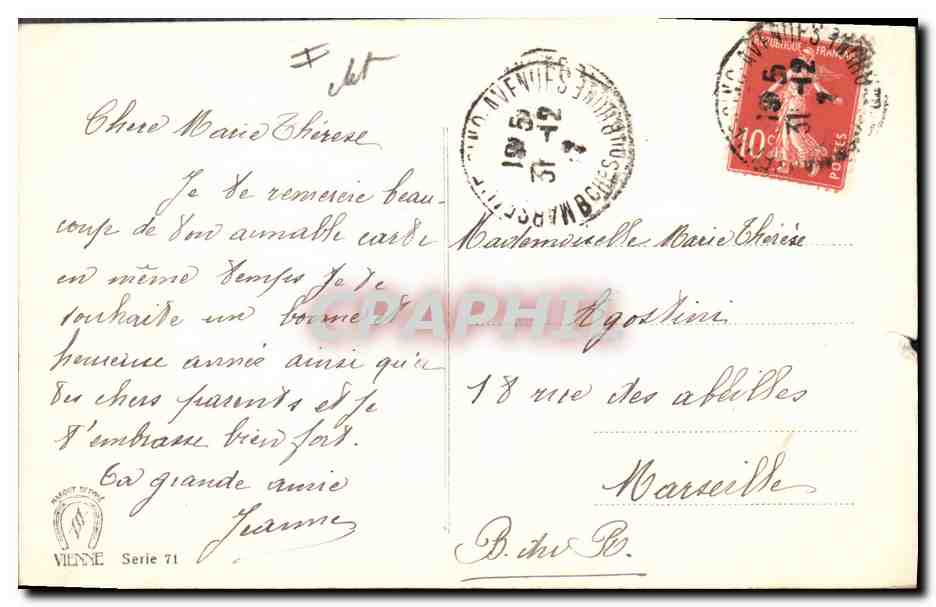 Chere Marie Thérèse
Je te remercie beau-
coup de ton aimable carte
en même temps je te
souhaite un bonne et
heureuse année ainsi qu'à
tes chers parents et je
t'embrasse bien fort.
Ta grande amie
Jeanne
MARQUE DEPOSÉ
VIENNE Serie 71
MARSEILLE CINQ-AVENUES
BOUCHES DU RHONE
19 5
31 -12
7
REPUBLIQUE FRANÇAISE
10 c
POSTES
19 5
31 -12
7
Mademoiselle Marie Thérèse
Agostini
18 rue des abeilles
Marseille
B. du R.
CPAPHIL